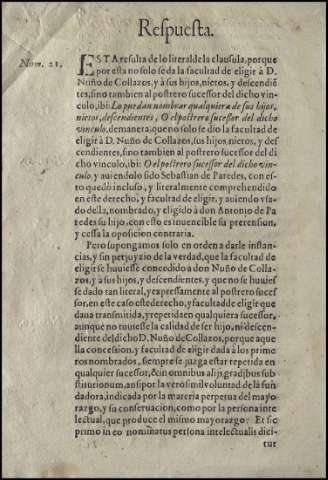 Respuesta.
Num. 21.
ESTA resulta de lo literal de la clausula, porque
por esta no solo se da la facultad de eligir à D.
Nuño de Collazos, y à sus hijos, nietos, y descendi-
entes, sino tambien al postrero sucessor del dicho vin-
culo, ibi: Lo puedan nombrar qualquiera de sus hijos,
nietos, descendientes, O el postrero sucessor del dicho
vinculo, de manera, que no solo se dio la facultad de
eligir à D. Nuño de Collazos, sus hijos, nietos, y des-
cendientes, sino tambien al postrero sucessor del di-
cho vinculo, ibi: O el postrero sucessor del dicho vin-
culo, y auiendolo sido Sebastian de Paredes, con es-
to quedò incluso, y literalmente comprehendido
en este derecho, y facultad de eligir, y auiendo vsa-
do della, nombrado, y eligido à don Antonio de Pa-
redes su hijo, con esto es inuencible su pretension,
y cessa la oposicion contraria.
Pero supongamos solo en orden a darle instan-
cias, y sin perjuyzio de la verdad, que la facultad de
eligir se huuiesse concedido a don Nuño de Colla-
zos, y à sus hijos, y descendientes, y que no se huuies-
se dado tan literal, y expressamente al postrero suces-
sor, en este caso este derecho, y facultad de eligir que
daua transmitida, y repetida en qualquiera sucessor,
aunque no tuuiesse la calidad de ser hijo, ni descen-
diente del dicho D. Nuño de Collazos, porque aque
lla concession, y facultad de eligir dada à los prime
ros nombrados, siempre se juzga estar repetida en
qualquier sucessor, & in omnibus alijs gradibus sub
stitutionum, ansi por la verosimil voluntad de la fun
dadora, indicada por la materia perpetua del mayo
razgo, y su conseruacion, como por la persona inte
lectual, que produce el mismo mayorazgo: Et sic
primo in eo nominatus persona intelectualis dici-
tur